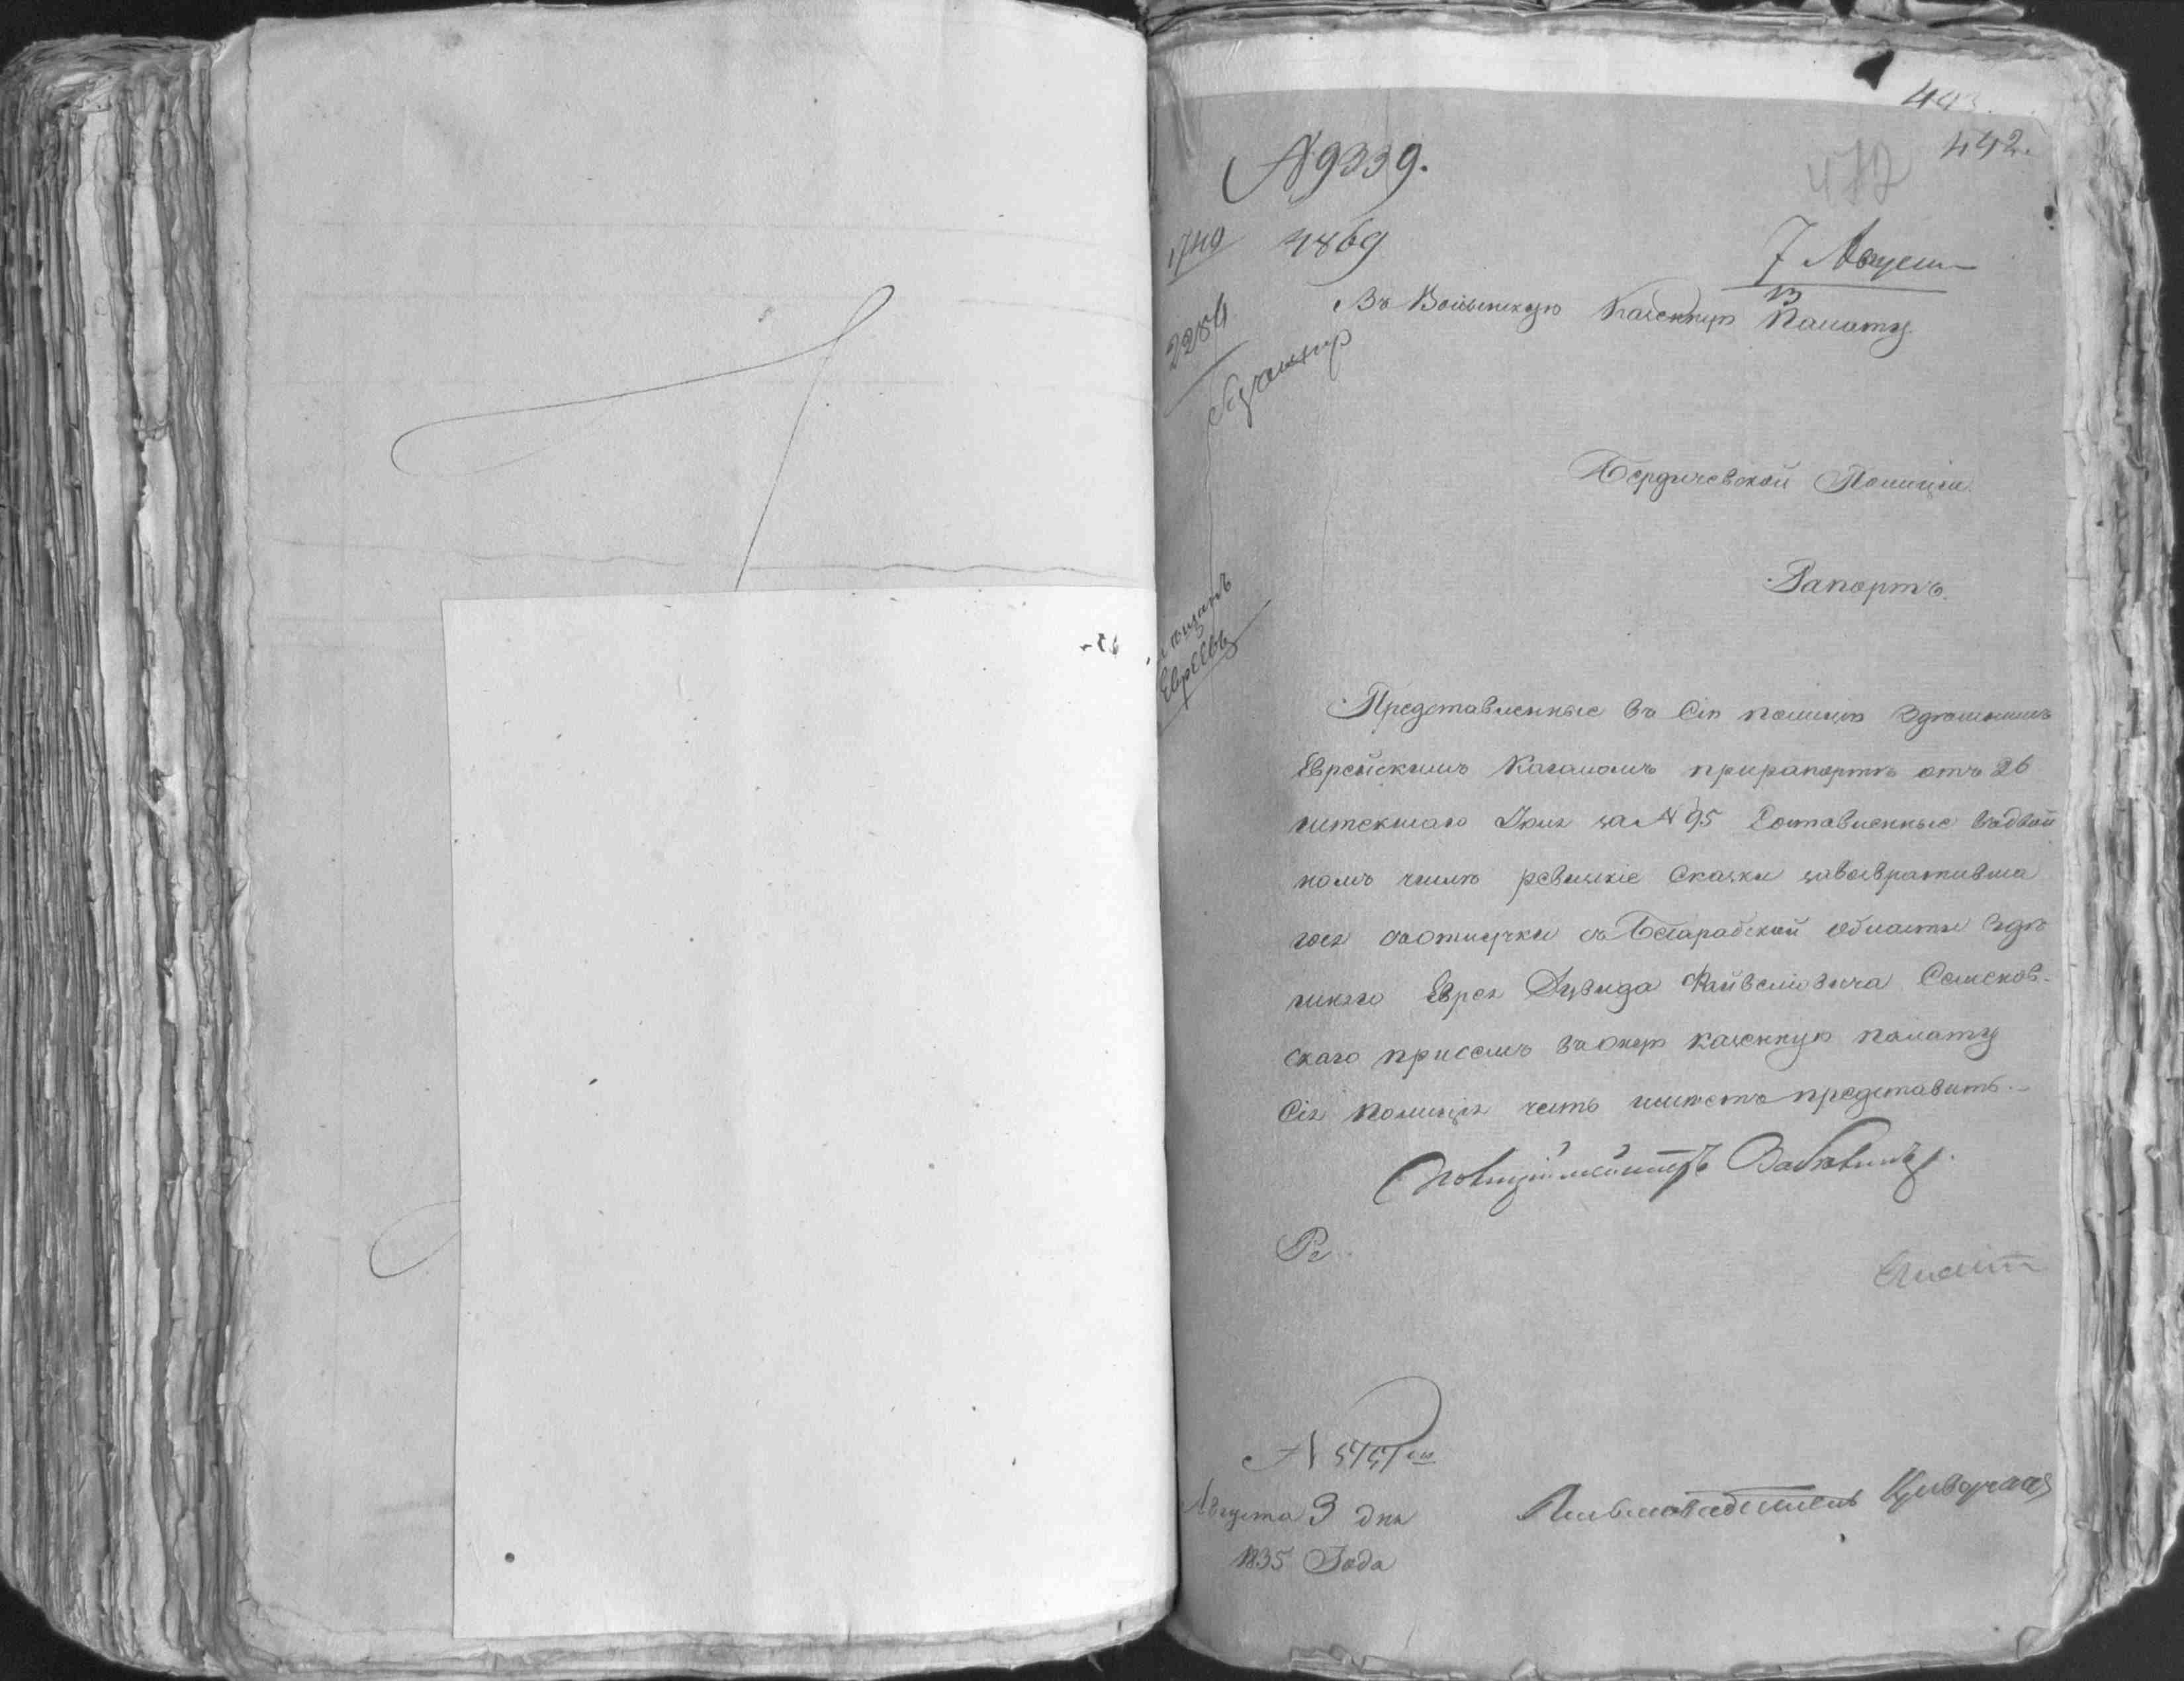 443.
442.
472
N 9339.
1749
4869
7 Август
2284
Въ Волынскую Казенную Палату.
Бердичевской Полиціи
Рапортъ.
мѣщанъ
Евреевъ
Представленные въ Сію полицію Здѣшнимъ
Еврейскимъ Кагаломъ прирапортѣ отъ 26
истекшаго Іюля за N 95 Составленные въдвой
номъ числѣ ревизкіе Сказки завозвратившa
гося зотлучки съ Бесарабской области Здѣ
шняго Еврея Дувида Файвелiовича
скаго присемъ въоную казенную палату
Сія полиція честь имѣетъ представить.
Полицiймейстеръ
N 5757
Августа 3 дня
1835 Года
Письмоводитель